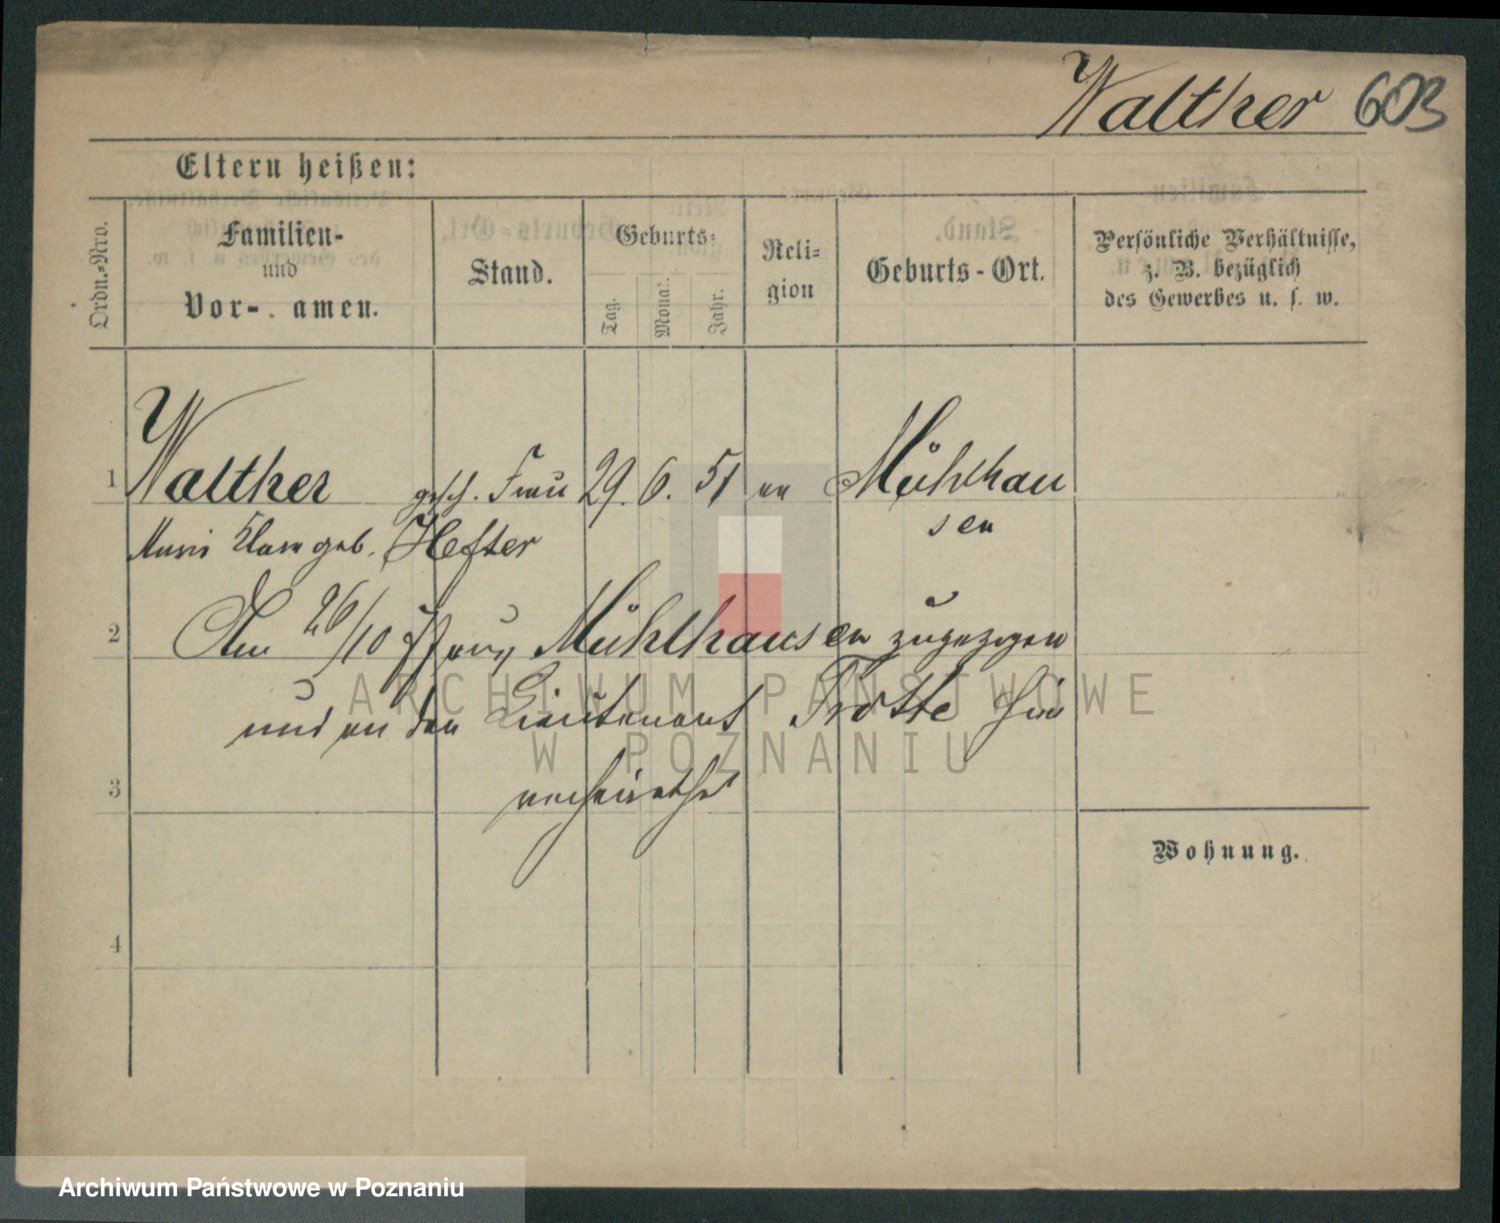 Walther 603
Eltern heißen:
Ordn.=Nro.
Familien-
und
Vor- . amen.
Stand.
Geburts=
Tag.
Monat.
Jahr.
Reli=
gion
Geburts-Ort.
Persönliche Verhältnisse,
z. B. bezüglich
des Gewerbes u. s. w.
1 Walther gesch. Frau 29. 6. 51 ev Mühlhau
sen
geb. Hefter
2 Am 26/10 Mühlhausen zugezogen
und an den Lieutenant Trotte hier
3 verheirathet
Wohnung.
4
ARCHIWUM PAŃSTWOWE
W POZNANIU
Archiwum Państwowe w Poznaniu